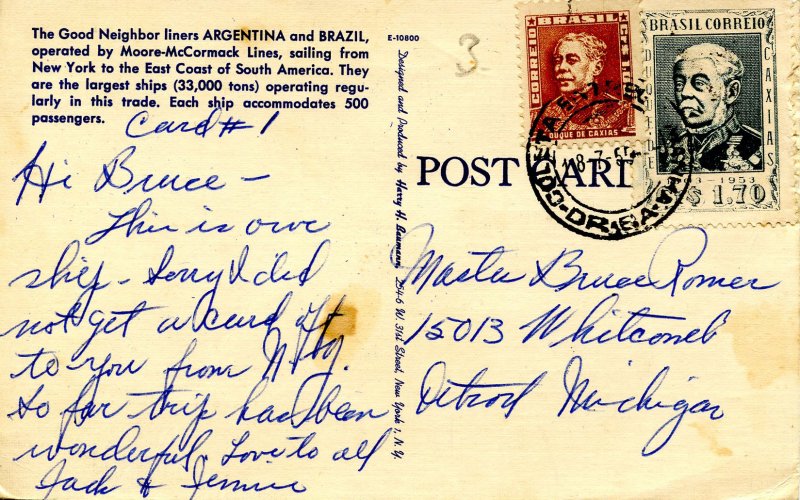 The Good Neighbor liners ARGENTINA and BRAZIL,
operated by Moore-McCormack Lines, sailing from
New York to the East Coast of South America. They
are the largest ships (33,000 tons) operating regu-
larly in this trade. Each ship accommodates 500
passengers.
Card #1
Hi Bruce -
This is our
ship - Sorry I did
not get a card off
to you from N. Y.
So far trip has been
wonderful. Love to all
Jack & Jennie
E-10800
Designed and Produced by Harry H. Baumann, 254-6 W 31st Street, New York 1, N. Y.
3
POST CARD
BRASIL
CORREIO
DUQUE DE CAXIAS
BRASIL CORREIO
DUQUE DE CAXIAS
1953
$ 1.70
Master Bruce Romer
15013 Whitcomb
Detroit Michigan